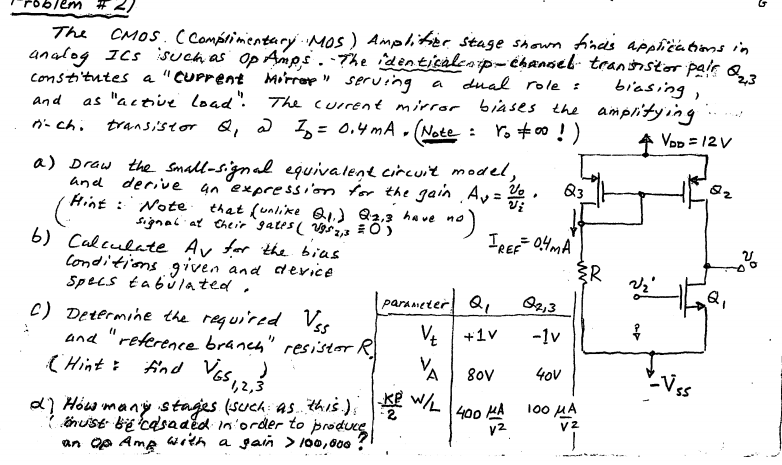 Problem #2)
G
The CMOS (Complimentary MOS) Amplifier stage shown finds applications in
analog ICs such as Op Amps. The identical p-channel transistor pair Q2,3
constitutes a "current mirror" serving a dual role : biasing,
and as "active load". The current mirror biases the amplifying
n-ch. transistor Q1 @ ID = 0.4mA. (Note : ro ≠ ∞ !)
a) Draw the small-signal equivalent circuit model,
and derive an expression for the gain Av = vo/vi .
(Hint : Note that (unlike Q1,) Q2,3 have no
signal at their gates (vgs2,3 ≡ 0)
b) Calculate Av for the bias
conditions given and device
specs tabulated.
c) Determine the required Vss
and "reference branch" resistor R.
(Hint : find VGS1,2,3)
d) How many stages (such as this)
must be casaded in order to produce
an Op Amp with a gain > 100,000 ?
parameter Q1 Q2,3
Vt +1V -1V
VA 80V 40V
KP/2 W/L 400 µA/V2 100 µA/V2
VDD = 12V
Q3
Q2
IREF = 0.4mA
R
vi
vo
Q1
-Vss